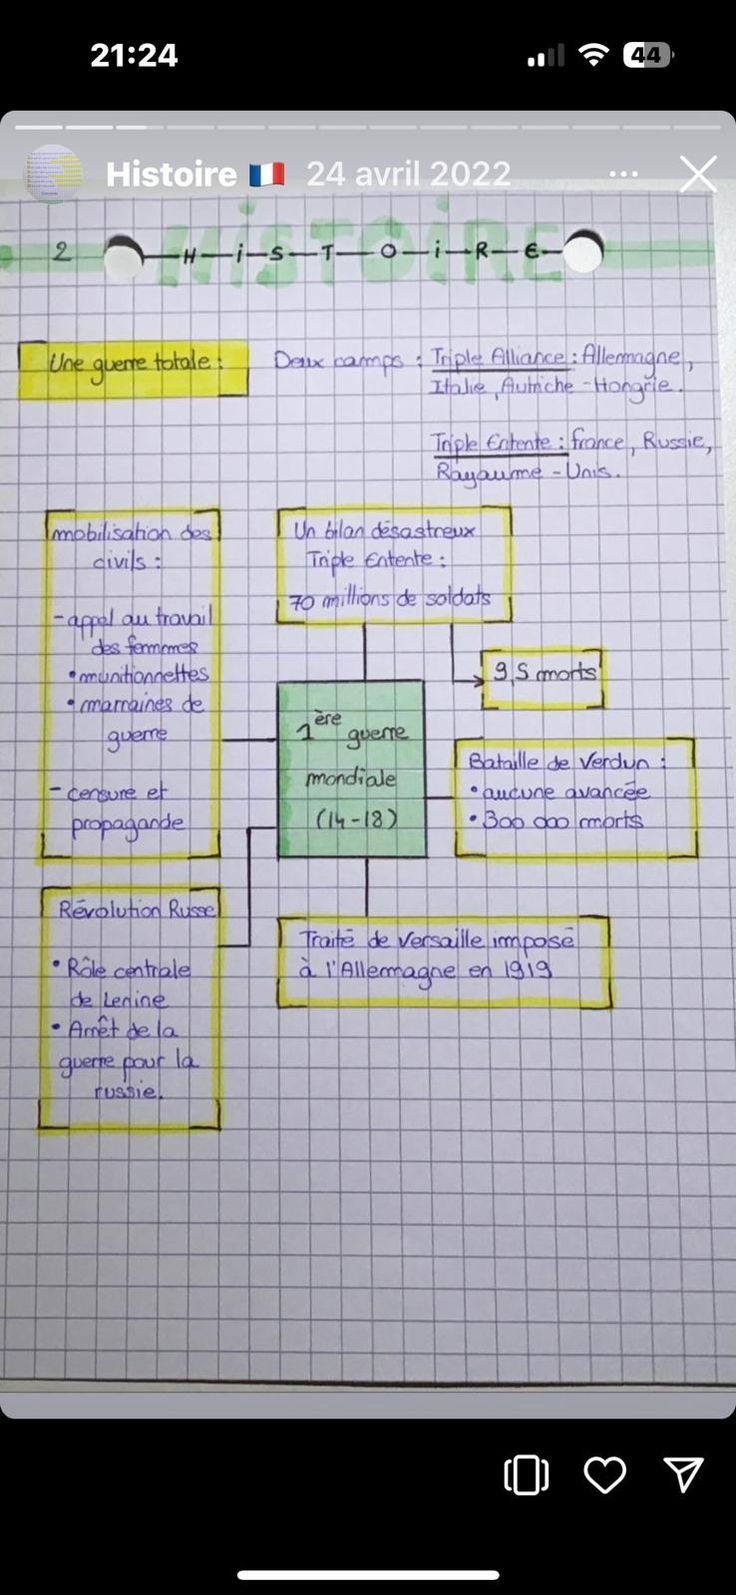 21:24
44
Histoire 🇫🇷 24 avril 2022
2
HISTOIRE
H-i-S-T-O-i-R-E
Une guerre totale :
Deux camps : Triple Alliance : Allemagne,
Italie, Autriche-Hongrie.
Triple Entente : france, Russie,
Royaume-Unis.
mobilisation des
civils :
- appel au travail
des femmes
• munitionnettes
• marraines de
guerre
- censure et
propagande
Un bilan désastreux
Triple Entente :
70 millions de soldats
9,5 morts
1ère guerre
mondiale
(14-18)
Bataille de Verdun :
• aucune avancée
• 300 000 morts
Révolution Russe
• Rôle centrale
de Lenine
• Arrêt de la
guerre pour la
russie.
Traité de Versaille imposé
à l'Allemagne en 1919